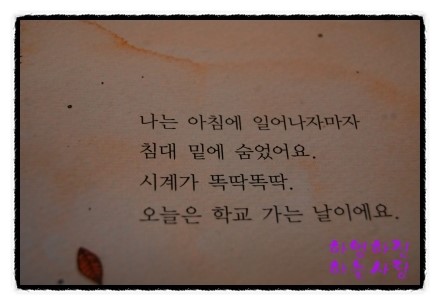 나는 아침에 일어나자마자
침대 밑에 숨었어요.
시계가 똑딱똑딱.
오늘은 학교 가는 날이에요.